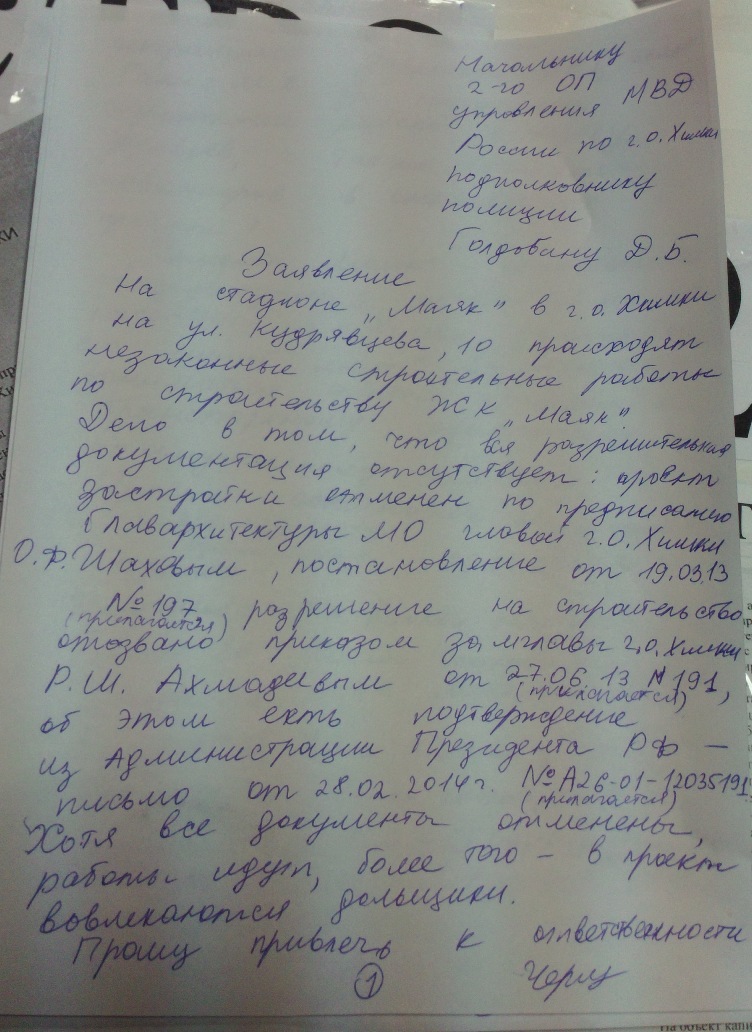 Начальнику
2-го ОП
управления МВД
России по г.о. Химки
подполковнику
полиции
Голдобину Д.Б.
Заявление
На стадионе „Маяк" в г.о. Химки
на ул. Кудрявцева, 10 происходят
незаконные строительные работы
по строительству ЖК „Маяк".
Дело в том, что вся разрешительная
документация отсутствует: проект
застройки отменен по предписанию
Главархитектуры МО главой г.о. Химки
О.Ф. Шаховым, постановление от 19.03.13
№197 разрешение на строительство
(прилагается)
отозвано приказом замглавы г.о. Химки
Р.Ш. Ахмадеевым от 27.06.13 №191,
(прилагается)
об этом есть подтверждение
из Администрации Президента РФ –
письмо от 28.02.2014г. №А26-01-12035191.
(прилагается)
Хотя все документы отменены,
работы идут, более того – в проект
вовлекаются дольщики.
Прошу привлечь к ответственности
1